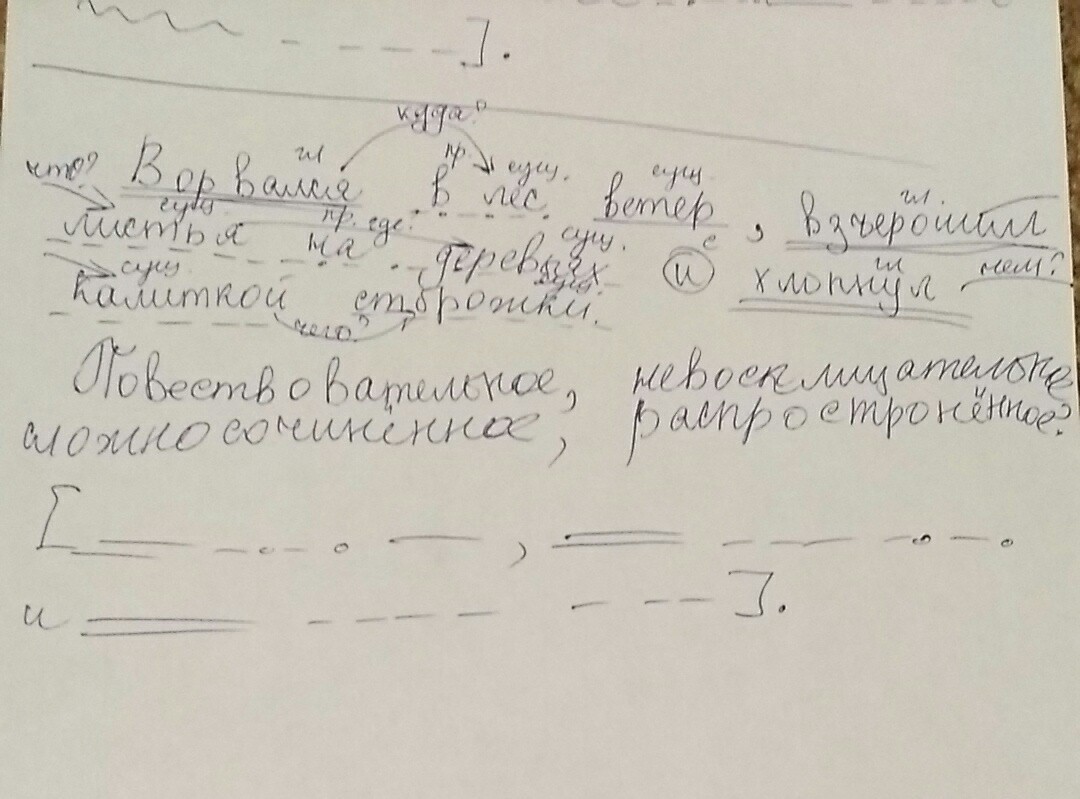 ].
куда?
что? гл пр. сущ. сущ. гл.
Ворвался в лес ветер, взъерошил
сущ. пр. где? сущ. с гл чем?
листья на деревьях и хлопнул
сущ. сущ.
калиткой сторожки.
чего?
Повествовательное, невосклицательное
сложносочинённое, распростронённое?
[ , 
и ].